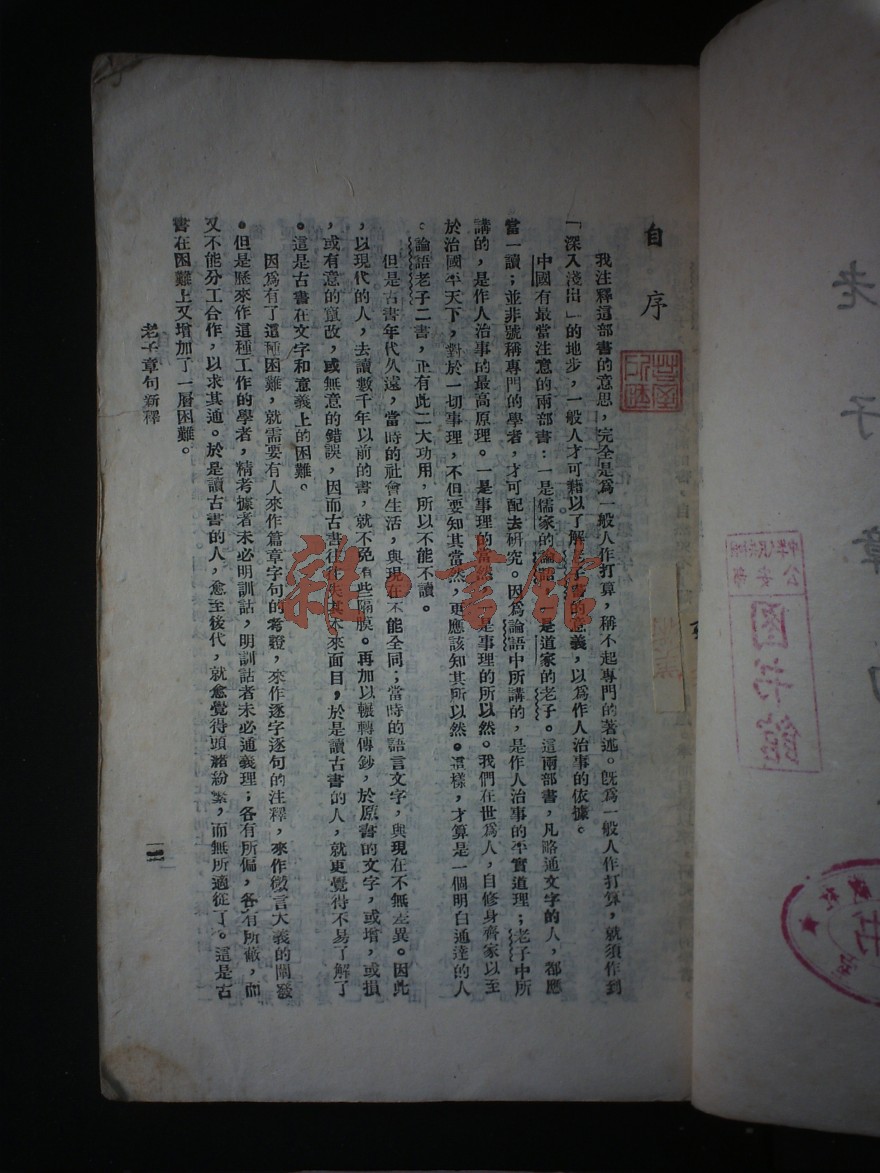 自序
我注釋這部書的意思，完全是爲一般人作打算，稱不起專門的著述。旣爲一般人作打算，就須作到
「深入淺出」的地步，一般人才可藉以了解老子書的意義，以爲作人治事的依據。
中國有最當注意的兩部書：一是儒家的論語，一是道家的老子。這兩部書，凡略通文字的人，都應
當一讀；並非號稱專門的學者，才可配去研究。因爲論語中所講的，是作人治事的平實道理；老子中所
講的，是作人治事的最高原理。一是事理的當然，一是事理的所以然。我們在世爲人，自修身齊家以至
於治國平天下，對於一切事理，不但要知其當然，更應該知其所以然。這樣，才算是一個明白通達的人
。論語老子二書，正有此二大功用，所以不能不讀。
但是古書年代久遠，當時的社會生活，與現在不能全同；當時的語言文字，與現在不無差異。因此
，以現代的人，去讀數千年以前的書，就不免有些隔膜。再加以輾轉傳鈔，於原書的文字，或增，或損
，或有意的竄改，或無意的錯誤，因而古書往往失其本來面目，於是讀古書的人，就更覺得不易了解了
。這是古書在文字和意義上的困難。
因爲有了這種困難，就需要有人來作篇章字句的考證，來作逐字逐句的注釋，來作微言大義的闡發
。但是歷來作這種工作的學者，精考據者未必明訓詁，明訓詁者未必通義理；各有所偏，各有所蔽，而
又不能分工合作，以求其通。於是讀古書的人，愈至後代，就愈覺得頭緒紛繁，而無所適從了。這是古
書在困難上又增加了一層困難。
老子章句新釋
一
雜·書館
老子章句
公安部
图书馆
书